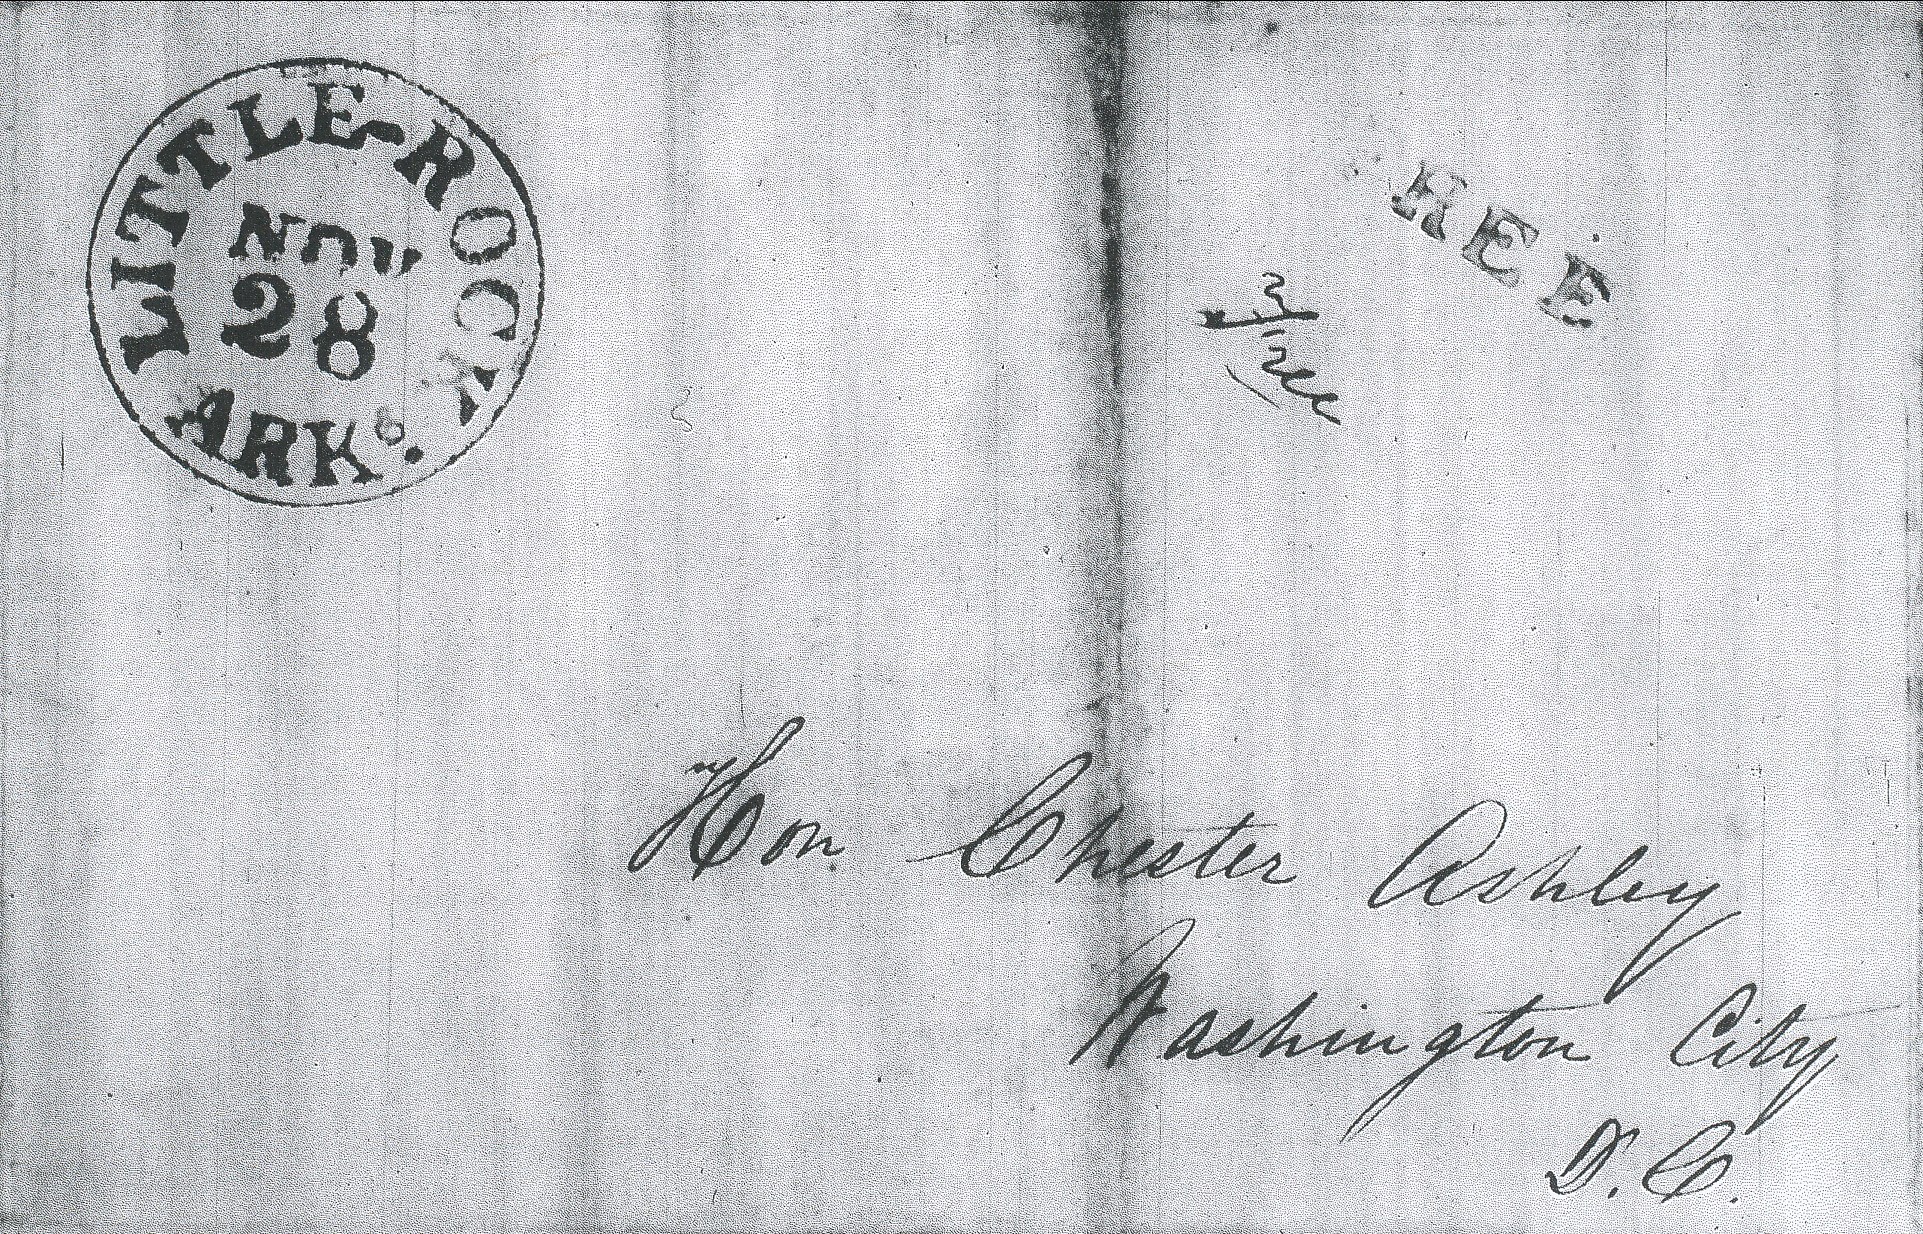 LITTLE-ROCK
NOV
28
ARKs.
REE
Free
Hon Chester Ashley
Washington City
D. C.